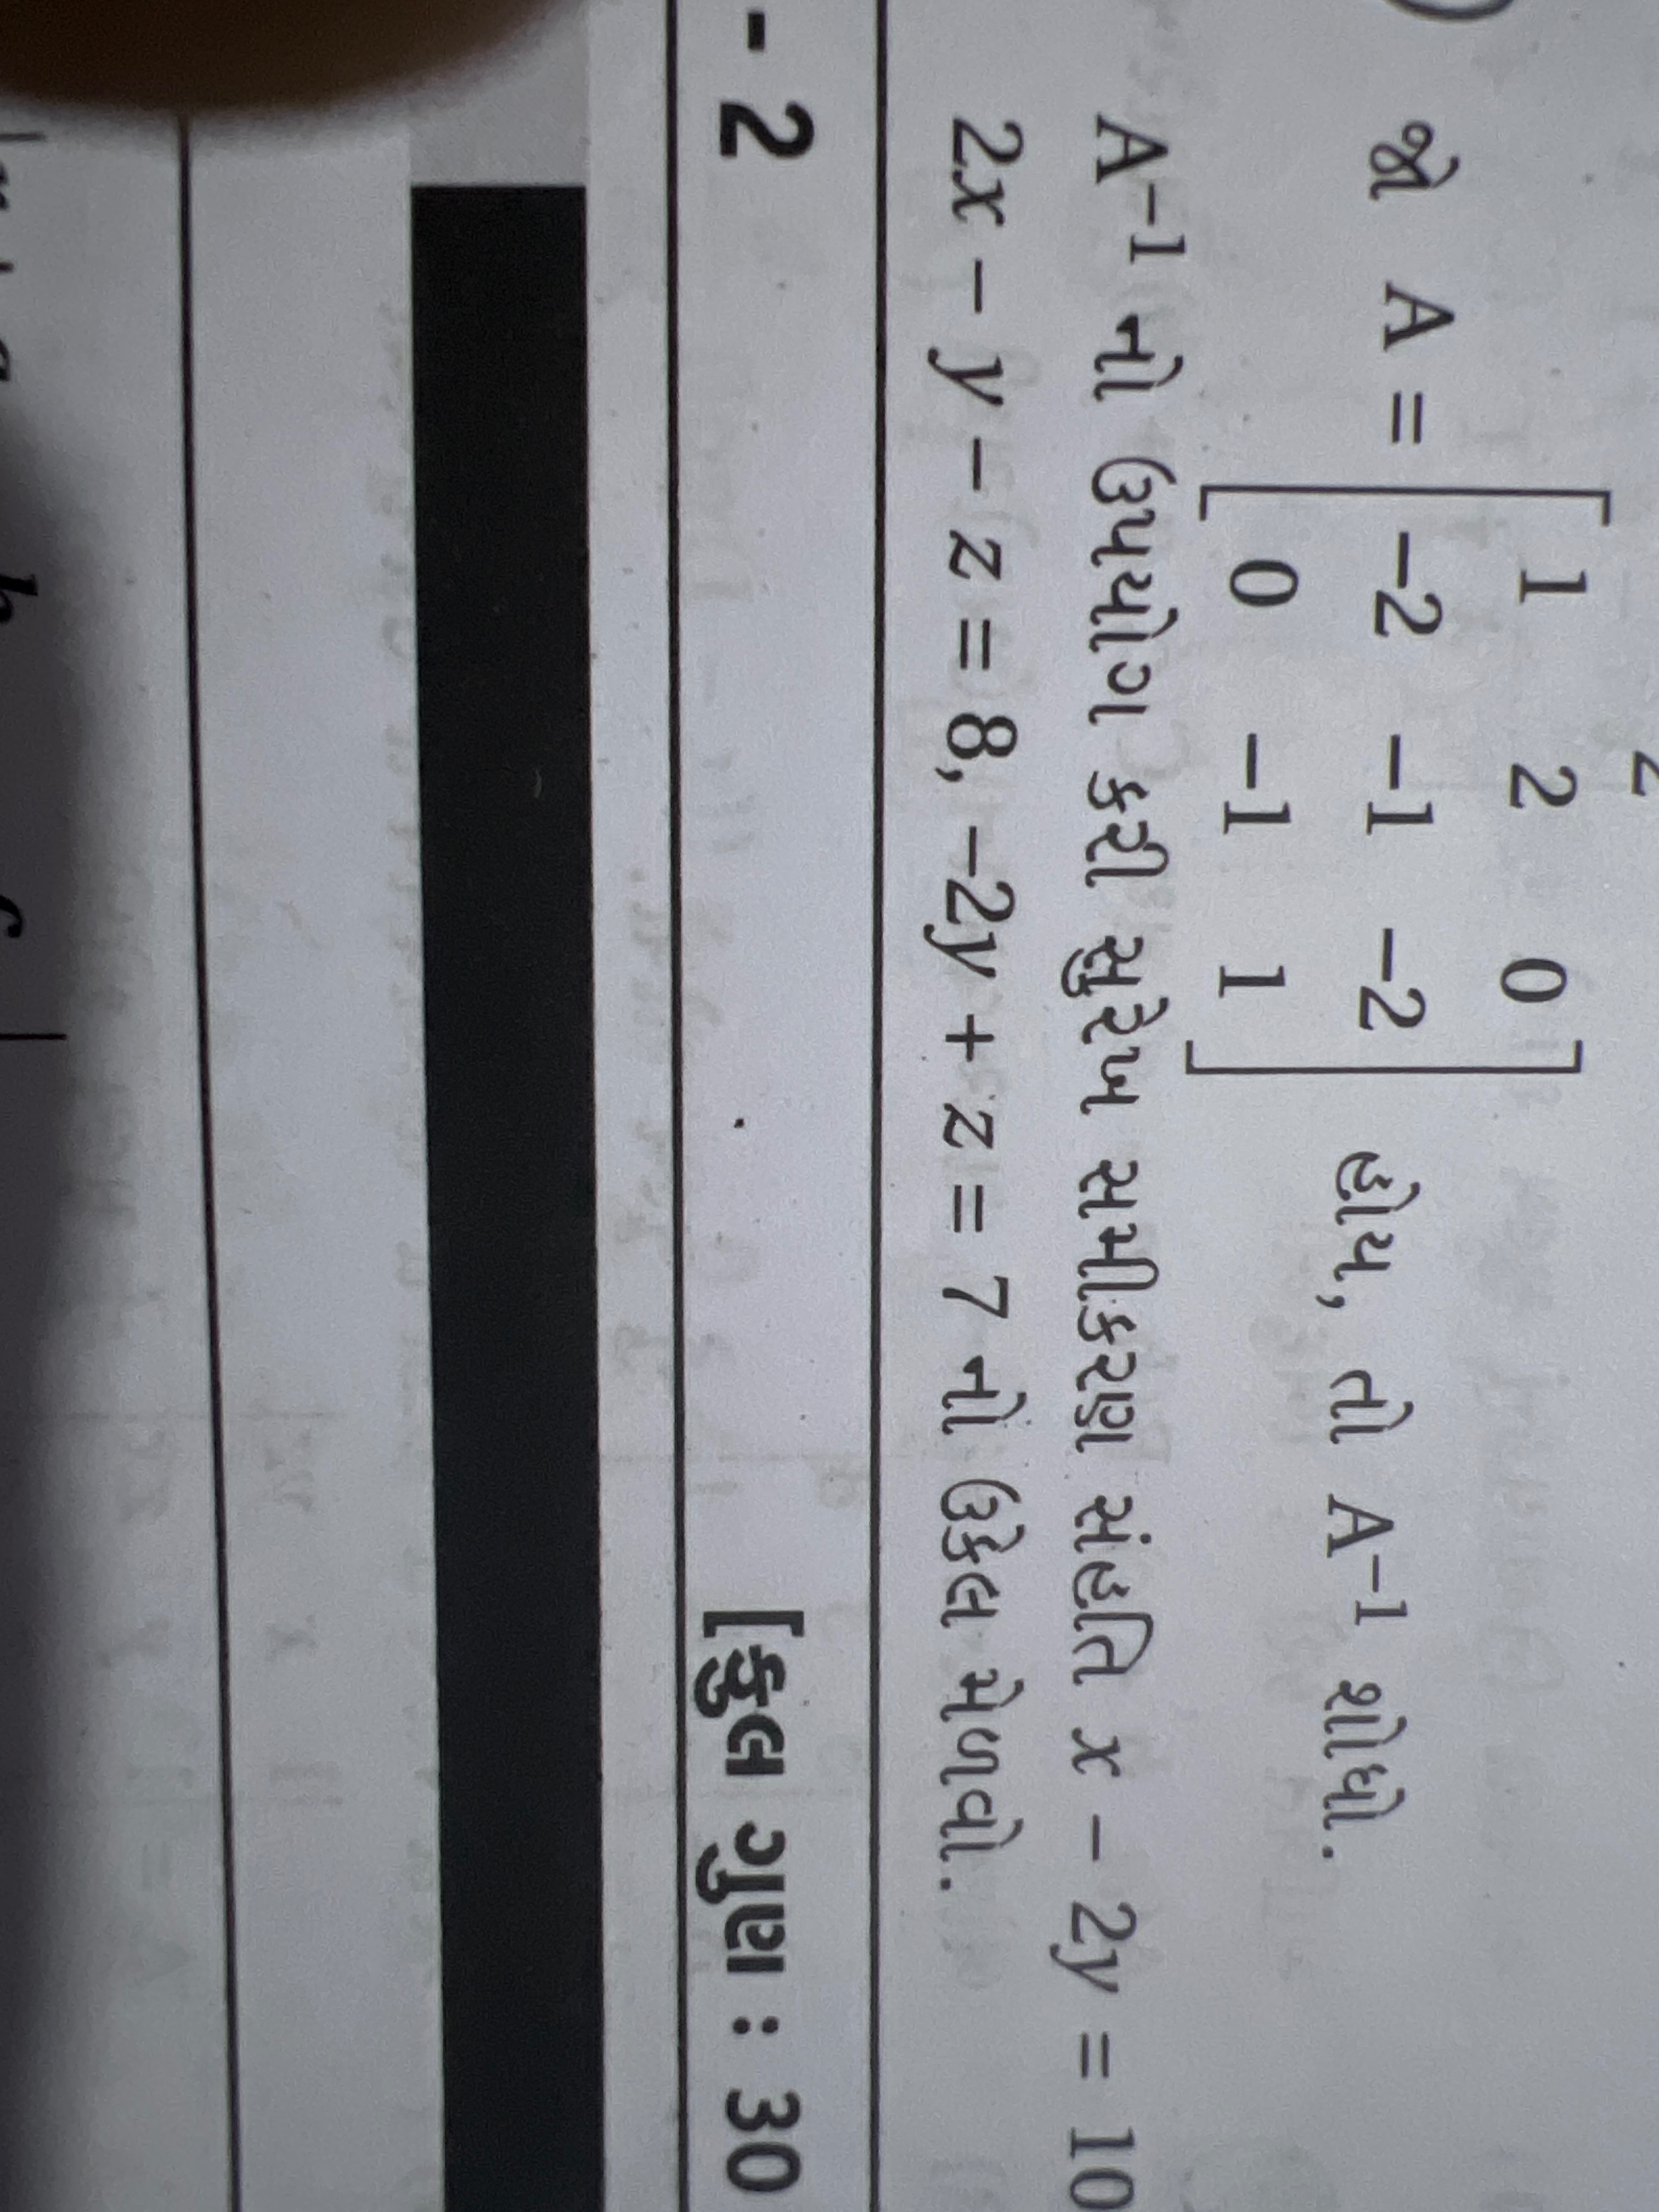 2
જો A = [ 1 2 0
-2 -1 -2
0 -1 1 ] હોય, તો A⁻¹ શોધો.
A⁻¹ નો ઉપયોગ કરી સુરેખ સમીકરણ સંહતિ x - 2y = 10
2x - y - z = 8, -2y + z = 7 નો ઉકેલ મેળવો.
- 2 [કુલ ગુણ : 30